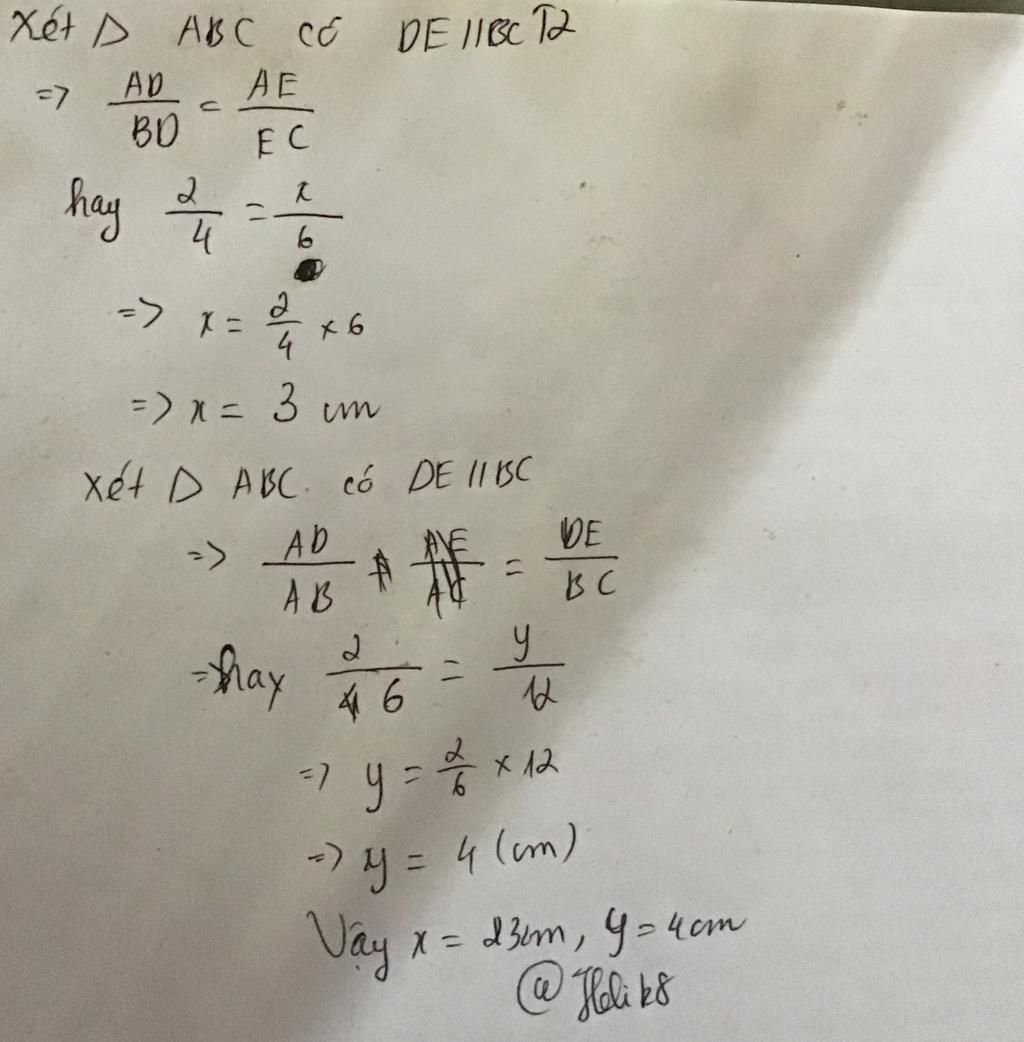 Xét Δ ABC có DE//BC T2
=> AD/BD = AE/EC
hay 2/4 = x/6
=> x = 2/4 x 6
=> x = 3 cm
Xét Δ ABC có DE//BC
=> AD/AB = DE/BC
hay 2/6 = y/12
=> y = 2/6 x 12
=> y = 4 (cm)
Vậy x = 3cm, y = 4cm